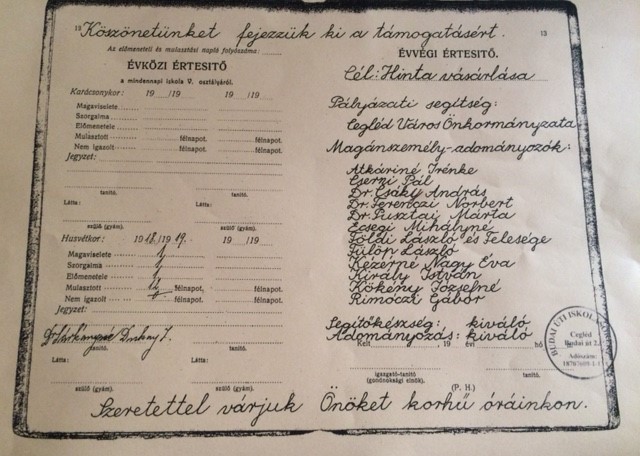 19 Köszönetünket fejezzük ki a támogatásért. 13
Az előmeneteli és mulasztási napló folyószáma:
ÉVKÖZI ÉRTESITŐ
a mindennapi iskola V. osztályáról.
Karácsonykor: 19 /19 19 /19
Magaviselete
Szorgalma
Előmenetele
Mulasztott félnapot. félnapot.
Nem igazolt félnapot. félnapot.
Jegyzet:
tanító. tanító.
Látta: Látta:
szülő (gyám). szülő (gyám).
Husvétkor: 1918/1919. 19 /19
Magaviselete 1
Szorgalma 1
Előmenetele 1
Mulasztott félnapot. félnapot.
Nem igazolt félnapot. félnapot.
Jegyzet:
tanító. tanító.
Látta: Látta:
szülő (gyám). szülő (gyám).
ÉVVÉGI ÉRTESITŐ.
Cél: Hinta vásárlása
Pályázati segítség:
Cegléd Város Önkormányzata
Magánszemély-adományozók:
Atkáriné Irénke
Cserni Pál
Dr. Csáky András
Dr. Ferenczi Norbert
Dr. Pusztai Márta
Ecsegi Mihályné
Földi László és Felesége
Fülöp László
Kézérné Nagy Éva
Király István
Kökény Józsefné
Rimóczi Gábor
Segítőkészség: kiváló
Adományozás: kiváló
Kelt 19 évi hó
igazgató-tanító tanító.
(gondnoksági elnök).
(P. H.)
BUDAI ÚTI ISKOL
Cegléd
Budai út 2.
Adószám:
Szeretettel várjuk Önöket korhű óráinkon.